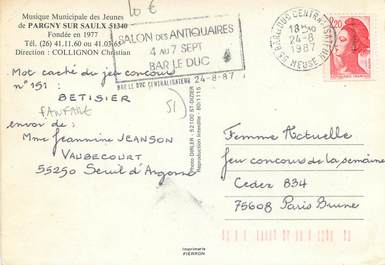 Musique Municipale des Jeunes
de PARGNY SUR SAULX 51340
Fondée en 1977
Tél. (26) 41.11.60 ou 41.03
Direction : COLLIGNON Christian
10 €
SALON DES ANTIQUAIRES
4 AU 7 SEPT
BAR LE DUC
BAR LE DUC CENTRALISATEUR 24-8-87
55 BAR LE DUC CENTRALISATEUR
18H
24-8
1987
MEUSE
2,20
Mot caché du jeu concours
n° 151 :
BETISIER
FANFARE
51
envoi de :
Mme Jeannine JEANSON
VAUBECOURT
55250 Seuil d'Argonne
Photo DIRLER - 52100 ST-DIZIER
Reproduction Interdite - 80/1115
Femme Actuelle
Jeu concours de la semaine
Cedex 834
75068 Paris Brune
Imprimerie
PIERRON